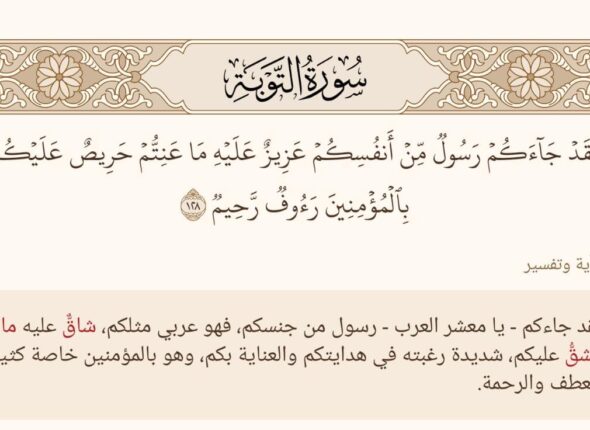 سُورَةُ التَّوْبَةِ
قَدۡ جَآءَكُمۡ رَسُولٞ مِّنۡ أَنفُسِكُمۡ عَزِيزٌ عَلَيۡهِ مَا عَنِتُّمۡ حَرِيصٌ عَلَيۡكُ
بِٱلۡمُؤۡمِنِينَ رَءُوفٞ رَّحِيمٞ ١٢٨
ية وتفسير
قد جاءكم - يا معشر العرب - رسول من جنسكم، فهو عربي مثلكم، شاقٌّ عليه ما
شقُّ عليكم، شديدة رغبته في هدايتكم والعناية بكم، وهو بالمؤمنين خاصة كثي
عطف والرحمة.